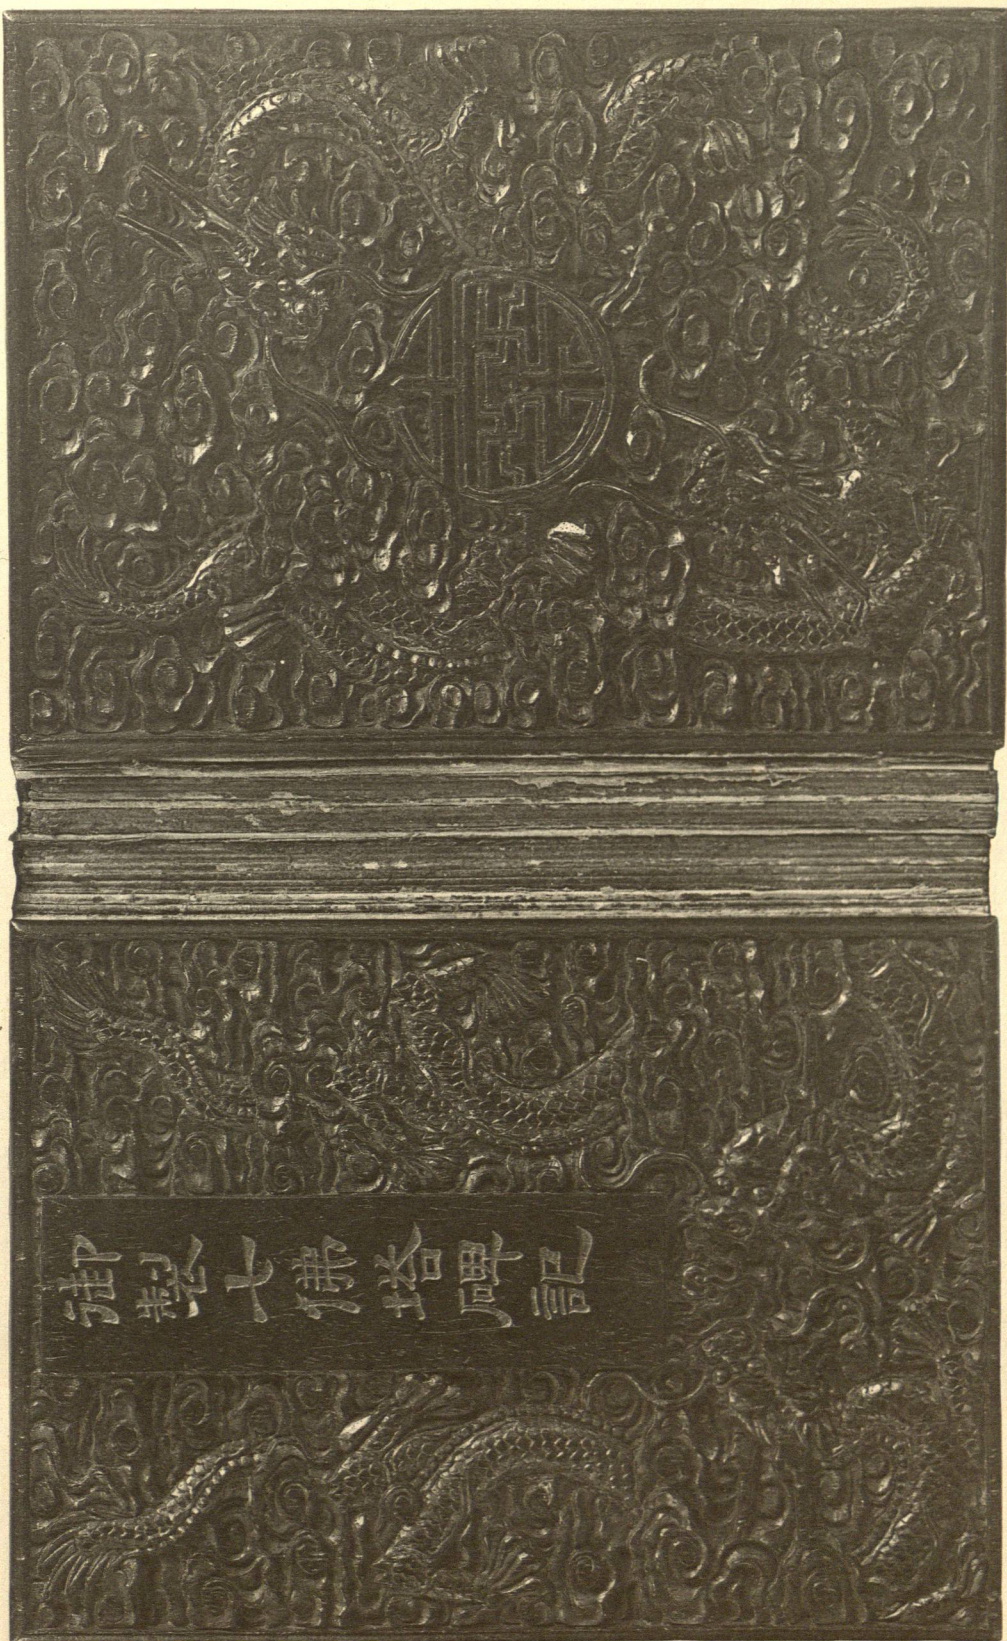 御製七佛塔碑記